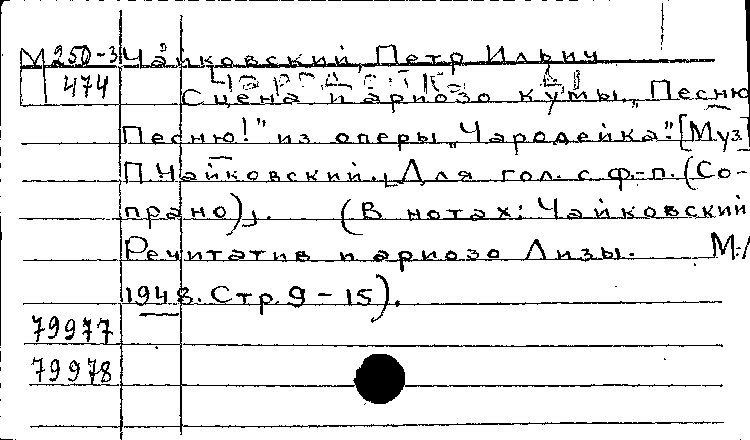 М250-3 Чайковский, Петр Ильич
474 Чародейка
Сцена и ариозо кумы „Песню
Песню!" из оперы „Чародейка". [Муз]
П. Чайковский. Для гол. с ф-п. (Со-
прано). (В нотах: Чайковский
Речитатив и ариозо Лизы. М.
1948. Стр. 9-15).
79977
79978